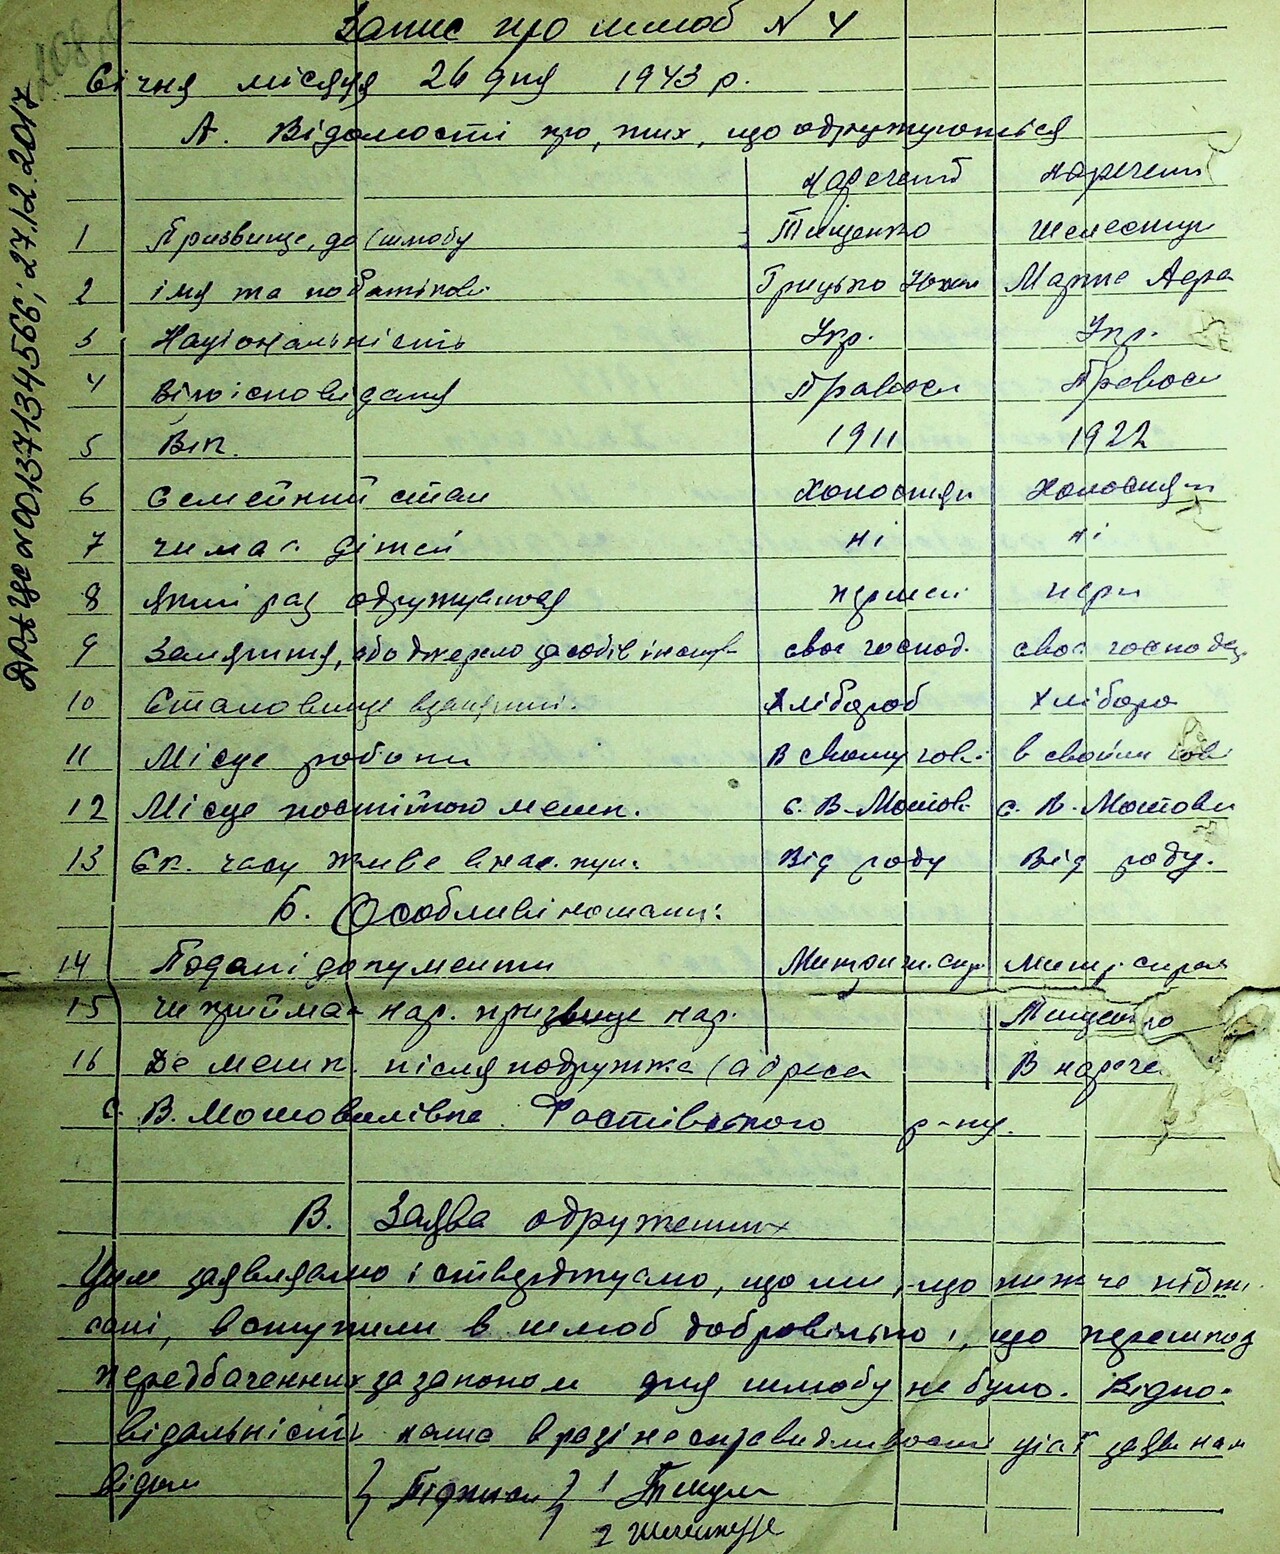 Запис про шлюб № 4
Січня місяця 26 дня 1943 р.
А. Відомості про тих, що одружуються
наречений наречена
1 Призвище до шлюбу Тищенко Шелестюк
2 імя та побатькові Грицько Марпе
3 Національність Укр. Укр.
4 Віросповідання Правосл Правосл
5 Вік. 1911 1922
6 Семейний стан холостяк холостяк
7 чи має дітей ні ні
8 який раз одружується первий перв
9 Заняття, або джерело засобів існув своє господ. своє господ.
10 Становище в занятті. хлібороб хлібороб
11 Місце роботи в свому госп. в своїм госп
12 Місце постійного мешк. с. В-Мотов с. В. Мотови
13 Ск. часу живе в нас. пун. Від роду Від роду.
Б. Особливі нотатки:
14 Подані документи Метрич. спр. метр. справ
15 чи приймає нар. призвище нар. Тищенко
16 Де мешк. після подружжа (адреса В нарече
с. В. Мотовилівка Фастівського р-ну.
В. Заява одружених
Цим заявляємо і стверджуємо, що ми, що нижче підпи
сані, вступили в шлюб добровільно і, що перешкод
передбаченних за законом для шлюбу не було. Відпо-
відальність наша в разі несправедливости цієї заяви нам
відом Підписи 1
2
ДРАЦС № 00137134566; 27.12.2017